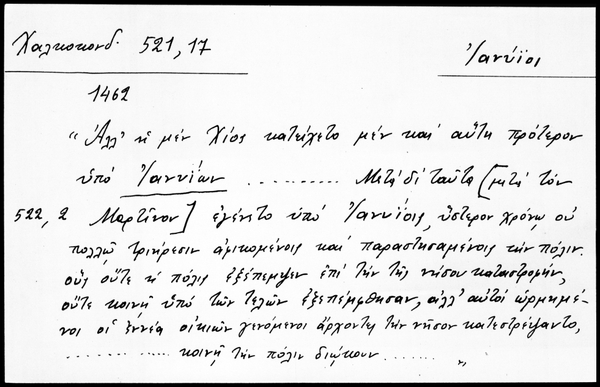 Χαλκοκονδ. 521,17
Ἰανύϊοι
1462
"Ἀλλ' ἡ μέν Χίος κατείχετο μέν καί αὕτη πρότερον
ὑπό Ἰανυΐων .......... Μετά δέ ταῦτα [μετά τόν
522,2 Μαρτῖνον] ἐγένετο ὑπό Ἰανυΐοις, ὕστερον χρόνῳ οὐ
πολλῷ τριήρεσιν ἀφικομένοις καί παραστησαμένοις τήν πόλιν.
οὕς οὔτε ἡ πόλις ἐξέπεμψεν ἐπί τήν τῆς νήσου καταστροφήν,
οὔτε κοινῇ ὑπό τῶν τελῶν ἐξεπέμφθησαν, ἀλλ' αὐτοί ὡρμημέ-
νοι οἱ ἐννέα οἰκιῶν γενόμενοι ἄρχοντες τήν νῆσον κατεστρέψαντο,
.............. κοινῇ τήν πόλιν διώκουν ....... "